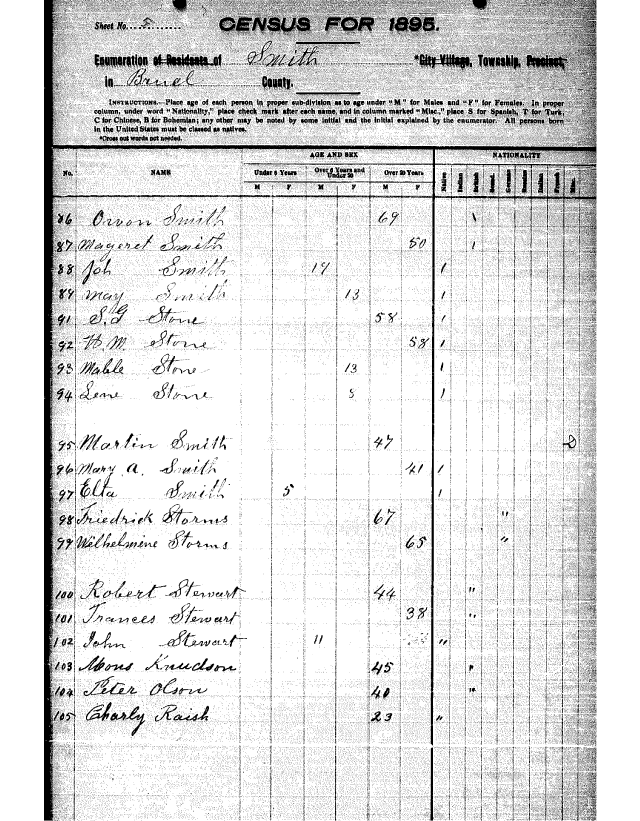 Sheet No. 5
CENSUS FOR 1895.
Enumeration of Residents of Smith *City Village, Township, Precinct,
in Bruel County.
INSTRUCTIONS.—Place age of each person in proper sub-division as to age under "M" for Males and "F" for Females. In proper
column, under word "Nationality," place check mark after each name, and in column marked "Misc.," place S for Spanish, T for Turk,
C for Chinese, B for Bohemian; any other may be noted by some initial and the initial explained by the enumerator. All persons born
in the United States must be classed as natives.
*Cross out words not needed.
AGE AND SEX NATIONALITY
No. NAME Under 6 Years Over 6 Years and Under 20 Over 20 Years
M F M F M F
86 Orvon Smith 69 \
87 Mageret Smith 50 \
88 Joh Smith 14 \
89 May Smith 13 \
91 S.G Stone 58 \
92 H.M. Stone 58 \
93 Mable Stone 13 \
94 Lene Stone 8 \
95 Martin Smith 47 D
96 Mary A. Smith 41 \
97 Elta Smith 5 \
98 Friedrick Storms 67 "
99 Wilhelmine Storms 65 "
100 Robert Stewart 44 "
101 Frances Stewart 38 "
102 John Stewart 11 "
103 Mons Knudson 45 "
104 Peter Olson 40 "
105 Charly Raish 23 "